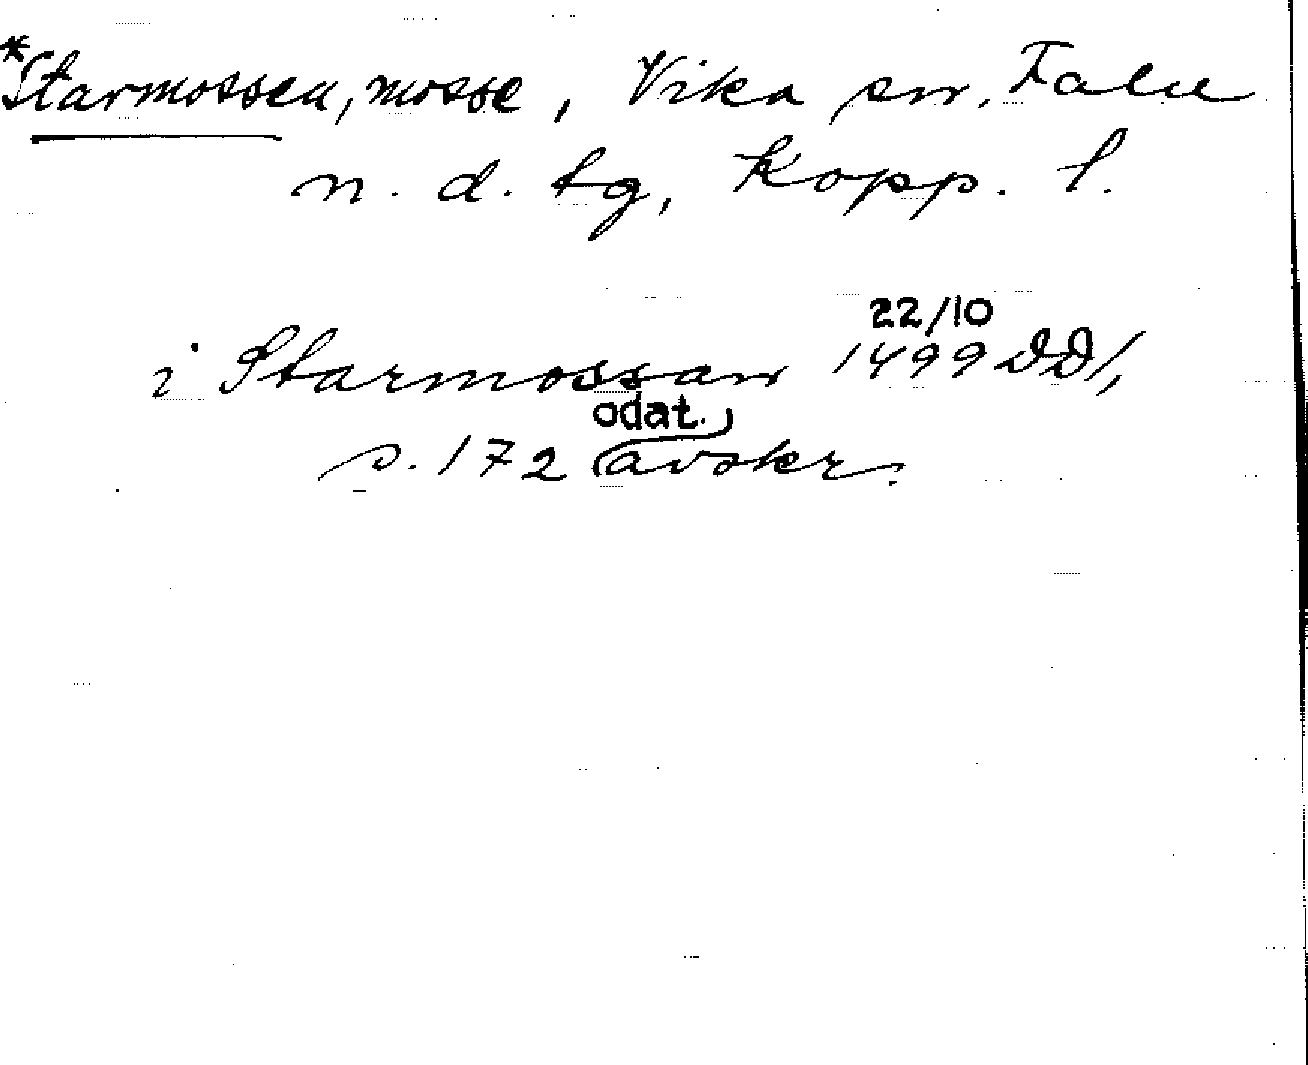 *Starmossen, mosse, Vika sn, Falu
n. d. tg, Kopp. l.
i Starmossan 22/10 1499 DD 1,
s. 172 (odat. avskr.